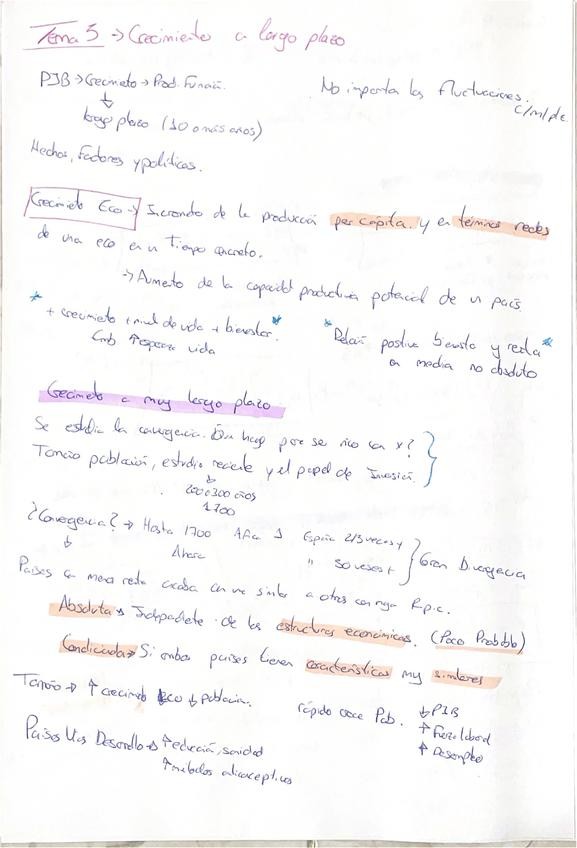 Tema 3 → Crecimiento a largo plazo
PIB → Crecimieto → Prod. Función.
No importa las fluctuaciones.
c/m/plz.
largo plazo (10 o más años)
Hechos, Factores y políticas.
Crecimieto Eco → Incremento de la producción per cápita. y en términos reales
de una eco en un tiempo concreto.
→ Aumento de la capacidad productiva potencial de un país
* + crecimieto + nivel de vida + bienestar. *
↑ esperanza vida
* Relación positiva bienesta y renta *
en media no absoluto
Crecimieto a muy largo plazo
Se estudia la convergencia. Qué hago para ser rico con x?
Tamaño población, estudio reciente y el papel de
200 o 300 años
1700
¿Convergencia? → Hasta 1700 Africa 1 España 2/3 veces +
Ahora " 50 veces +
Gran Divergencia
Países con menos renta acaba con una similar a otros con mayor R.p.c.
Absoluta → Independiete de las estructuras económicas. (Poco Probable)
Condicionada → Si ambos países tienen características muy similares
Tamaño → ↑ crecimieto Eco ↓ población.
rápido crece Pob. ↓ PIB
↑ Fuerza laboral
↑ Desempleo
Países Desarrollo → ↑ educación, sanidad
↑ métodos anticonceptivos